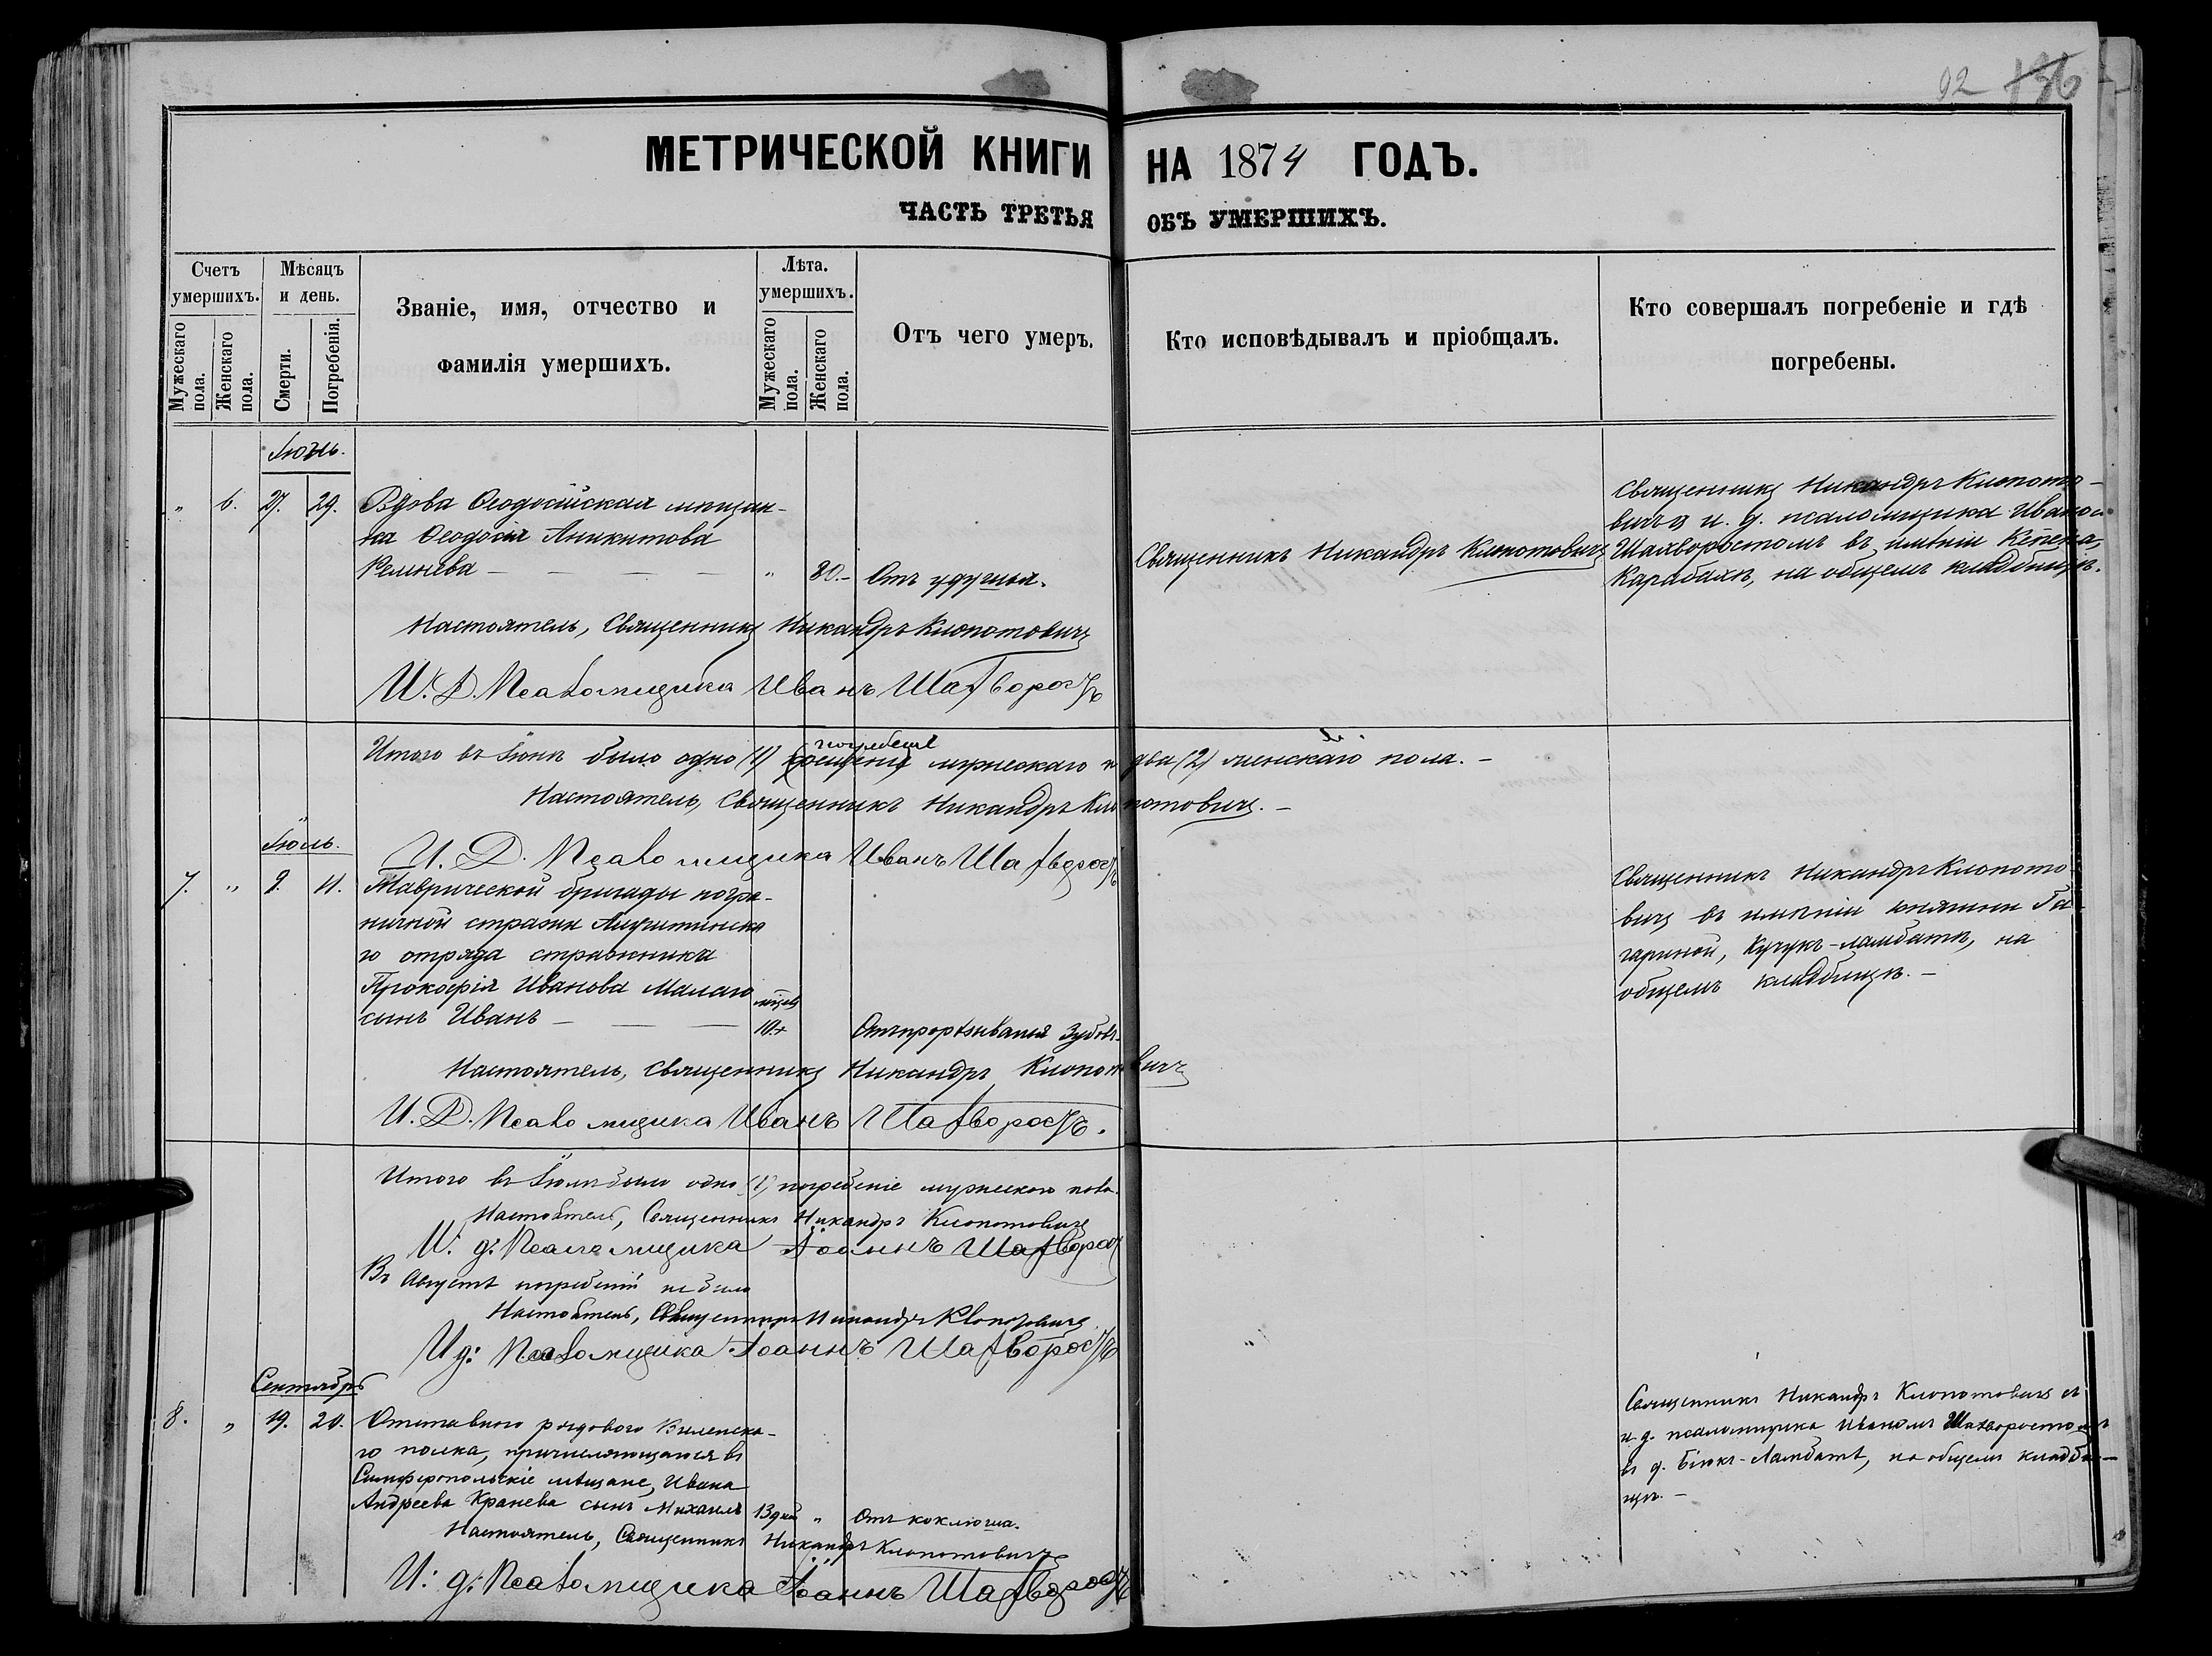 92 136
МЕТРИЧЕСКОЙ КНИГИ НА 1874 ГОДЪ.
ЧАСТЬ ТРЕТЬЯ ОБЪ УМЕРШИХЪ.
Счетъ умершихъ.
Мужескаго пола.
Женскаго пола.
Мѣсяцъ и день.
Смерти.
Погребенія.
Званіе, имя, отчество и
фамилія умершихъ.
Лѣта. умершихъ.
Мужескаго пола.
Женскаго пола.
Отъ чего умеръ.
Кто исповѣдывалъ и пріобщалъ.
Кто совершалъ погребеніе и гдѣ
погребены.
Іюнь.
" 6. 27. 29. Вдова Ѳеодосійская мѣщан-
ка Ѳеодосія Аникитова
" 80.- Отъ удушья.
Священникъ Никандръ Клопотовичъ
Священникъ Никандръ Клопото-
вичъ и. д. псаломщика Иваномъ
Шахворостомъ въ имѣніи
Карабахъ, на общемъ кладбищѣ.
Настоятель, Священникъ Никандръ Клопотовичъ
И. Д. Псаломщика Иванъ Шахворостъ
Итого въ Іюнѣ было одно (1) погребеніе мужескаго и два (2) женскаго пола. -
Настоятель, Священникъ Никандръ Клопотовичъ. -
И. Д. Псаломщика Иванъ Шахворостъ
Іюль.
7. " 9. 11. Таврической бригады погра-
ничной стражи
го отряда стражника
Прокофія Иванова Малаго
сынъ Иванъ
Отъ прорѣзыванія зубовъ.
Священникъ Никандръ Клопото-
вичъ въ имѣніи княгини Га-
гариной, Кучукъ-Ламбатѣ, на
общемъ кладбищѣ. -
Настоятель, Священникъ Никандръ Клопотовичъ
И. Д. Псаломщика Иванъ Шахворостъ.
Итого въ Іюлѣ было одно (1) погребеніе мужескаго пола.
Настоятель, Священникъ Никандръ Клопотовичъ
И. д. Псаломщика Іоаннъ Шахворостъ
Въ Августѣ погребеній не было
Настоятель, Священникъ Никандръ Клопотовичъ
И д: Псаломщика Іоаннъ Шахворостъ
Сентябрь
8. " 19. 20. Отставного рядового Виленска-
го полка, причисляющагося въ
Симферопольскіе мѣщане, Ивана
Андреева Кранева сынъ Михаилъ
13 дней " Отъ коклюша.
Священникъ Никандръ Клопотовичъ съ
и. д. псаломщика Иваномъ Шахворостомъ
въ д. Біюкъ-Ламбатѣ, на общемъ кладби-
щѣ. -
Настоятель, Священникъ Никандръ Клопотовичъ
И: д: Псаломщика Іоаннъ Шахворостъ